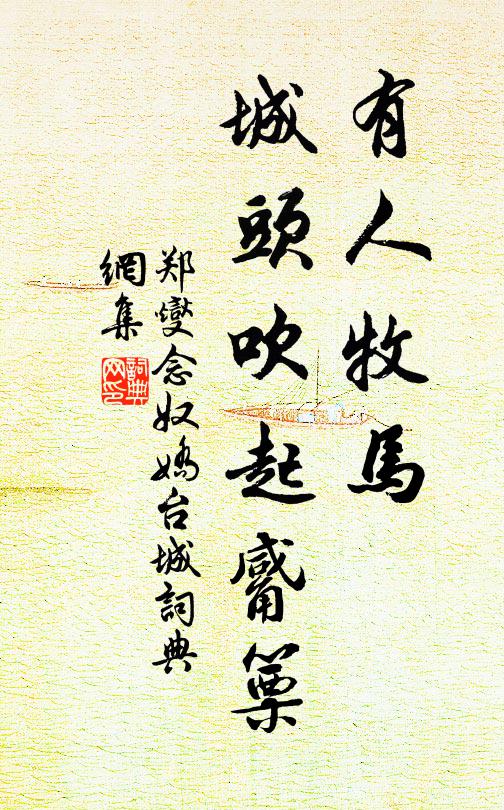 有人牧馬
城頭吹起觱篥
郑燮念奴嬌台城詞典
網集
詞典
网印